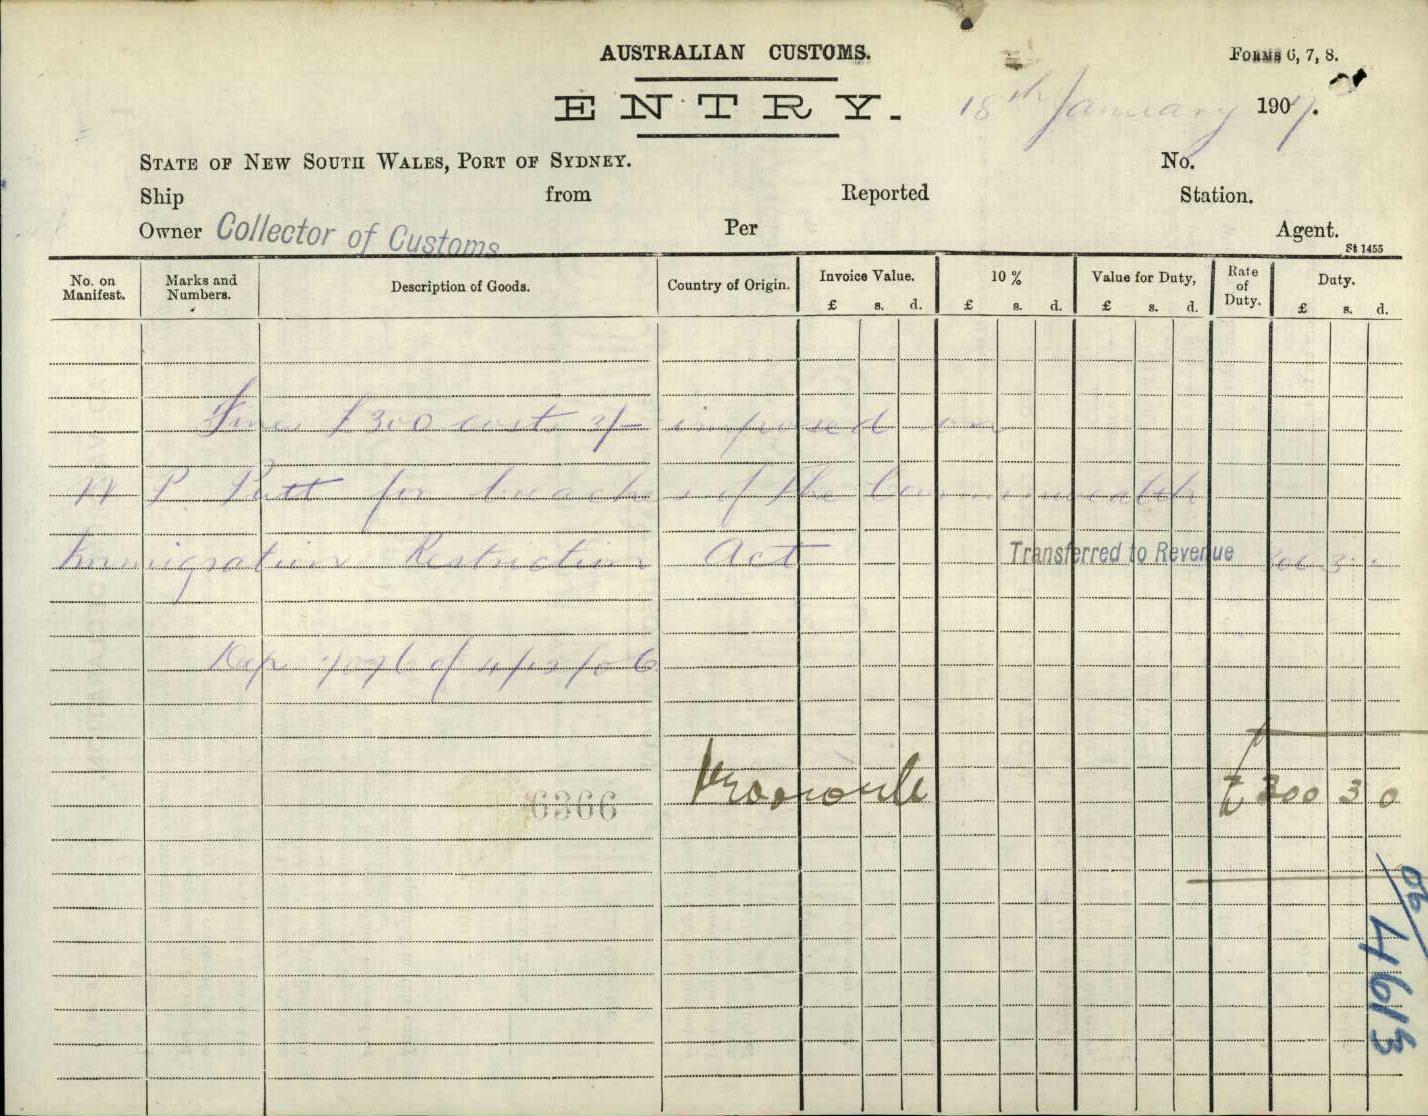 AUSTRALIAN CUSTOMS.
FORMS 6, 7, 8.
ENTRY.
18th January 1907.
STATE OF NEW SOUTH WALES, PORT OF SYDNEY.
No.
Ship from Reported Station.
Owner Collector of Customs Per Agent.
St 1455
No. on Manifest. Marks and Numbers. Description of Goods. Country of Origin. Invoice Value. 10 % Value for Duty, Rate of Duty. Duty.
£ s. d. £ s. d. £ s. d. £ s. d.
Fines £300 costs 3/- imposed on
P Putt for breaches of the Commonwealth
Immigration Restriction Act Transferred to Revenue 300 3 -
of 4/12/06
6366
£ 300 3 0
06/4613